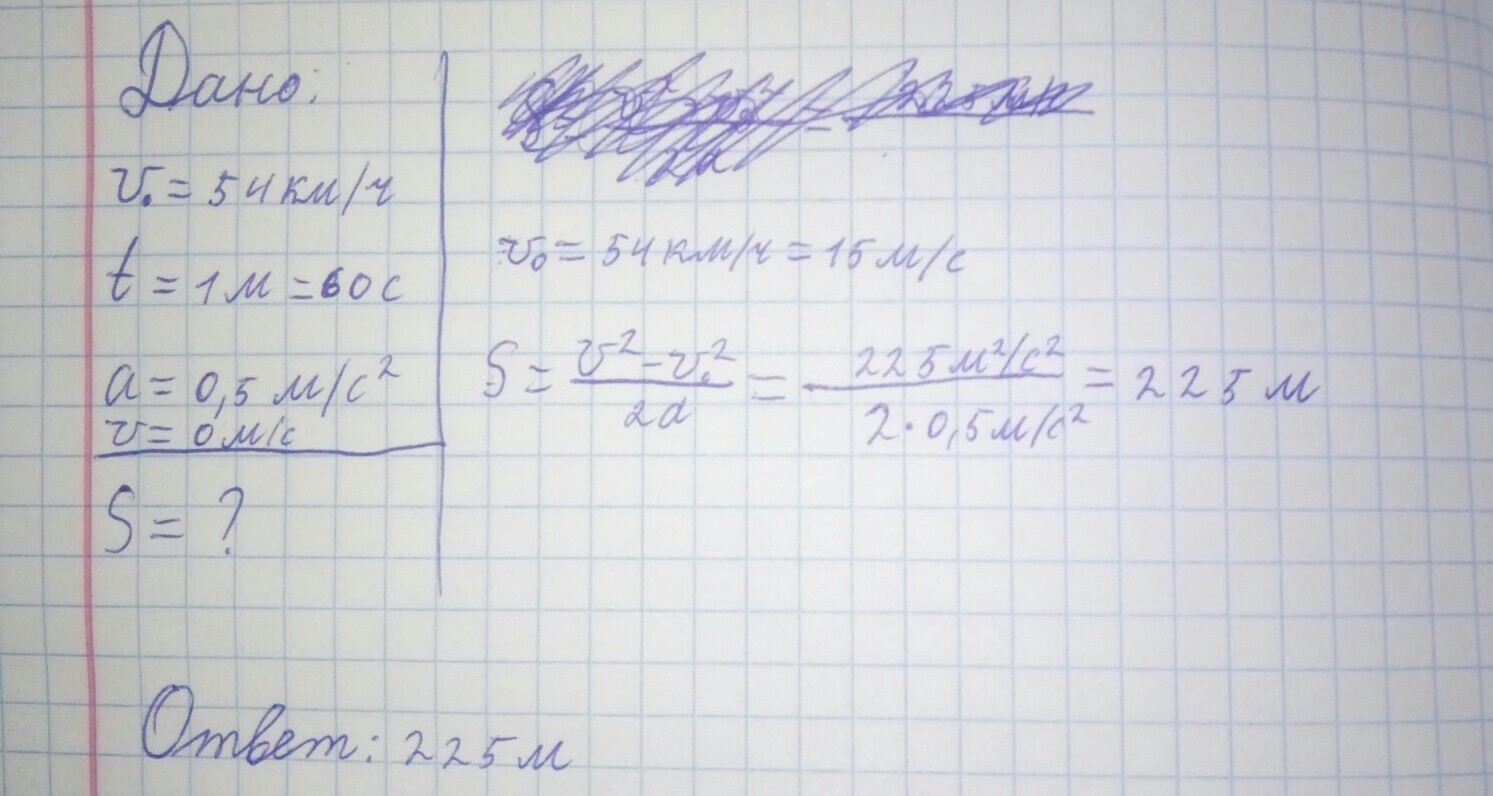 Дано:
v₀ = 54 км/ч
t = 1 м = 60 с
a = 0,5 м/с²
v = 0 м/с
S = ?
v₀ = 54 км/ч = 15 м/с
S = (v² - v₀²)/2a = 225 м²/с² / 2·0,5 м/с² = 225 м
Ответ: 225 м